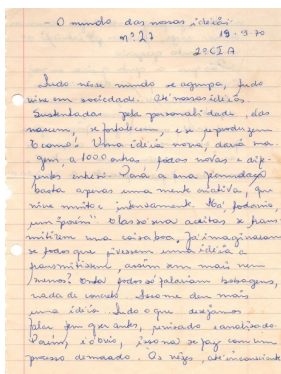 - O mundo das nossas idéias -
nº 27 19-9-70
2º C I A
Tudo nesse mundo se agrupa, tudo
vive em sociedade. Até nossas idéias.
Sustentadas pela personalidade, elas
nascem, se fortalecem, e se reproduzem
E como! Uma idéia nova, dará ma
gem, a 1000 outras, todas novas e dife
rentes entre si. Para a sua fecundação
basta apenas uma mente criativa, que
vive muito e intensamente. Há, todavia,
um "porém". Elas só serão aceitas se trans
mitirem uma coisa boa. Já imaginaram
se todos que tivessem uma idéia a
transmitissem, assim sem mais nem
menos? Então todos só falariam bobagens,
nada de concreto. Isso me deu mais
uma idéia. Tudo o que desejamos
falar tem que ser antes, pensado e analisado.
Porém, é óbvio, isso não se faz com um
processo demorado. Às vezes, até inconsciente